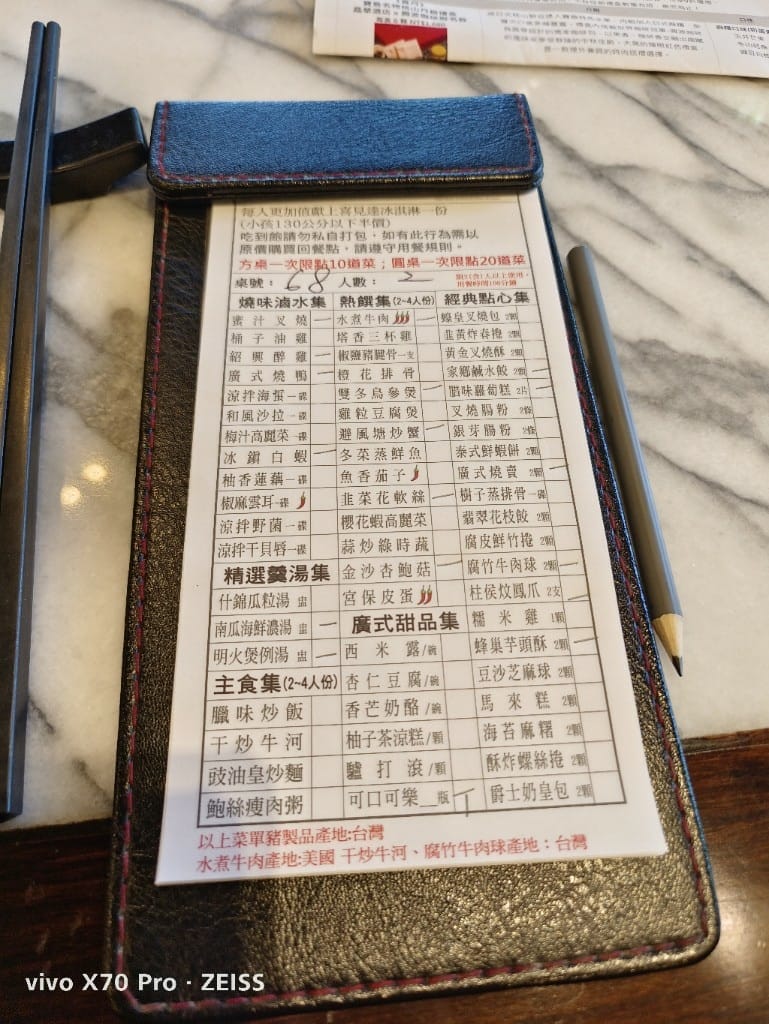 每人更加值獻上喜見達冰淇淋一份
(小孩130公分以下半價)
吃到飽請勿私自打包，如有此行為需以
原價購買回餐點，請遵守用餐規則。
方桌一次限點10道菜；圓桌一次限點20道菜
桌號：68 人數：2
燒味滷水集 熱饌集(2~4人份) 經典點心集
蜜汁叉燒 一 水煮牛肉 一 蠔皇叉燒包 2顆
桶子油雞 塔香三杯雞 韭黃炸春捲 2顆
紹興醉雞 一 椒鹽豬腱骨一支 黃金叉燒酥 2顆
廣式燒鴨 一 橙花排骨 家鄉鹹水餃 2顆 一
涼拌海蜇一碟 雙冬烏參煲 一 臘味蘿蔔糕 2片 一
和風沙拉一碟 雞粒豆腐煲 叉燒腸粉 2條
梅汁高麗菜一碟 避風塘炒蟹 一 銀芽腸粉 2條
冰鎮白蝦 一 冬菜蒸鮮魚 泰式鮮蝦餅 2顆
柚香蓮藕一碟 魚香茄子 廣式燒賣 2顆 一
椒麻雲耳一碟 韭菜花軟絲 一 樹子蒸排骨一碟
涼拌野菌一碟 櫻花蝦高麗菜 翡翠花枝餃 2顆
涼拌干貝唇一碟 蒜炒綠時蔬 腐皮鮮竹捲 2顆
精選羹湯集 金沙杏鮑菇 一 腐竹牛肉球 2顆 一
什錦瓜粒湯 盅 宮保皮蛋 柱侯炆鳳爪 2支 一
南瓜海鮮濃湯 盅 一 廣式甜品集 糯米雞 1顆
明火煲例湯 盅 一 西米露/碗 蜂巢芋頭酥 2顆 一
主食集(2~4人份) 杏仁豆腐/碗 豆沙芝麻球 2顆
臘味炒飯 香芒奶酪/碗 馬來糕 2顆
干炒牛河 柚子茶涼糕/顆 海苔麻糬 2顆
豉油皇炒麵 驢打滾/顆 酥炸螺絲捲 2顆
鮑絲瘦肉粥 可口可樂__瓶 爵士奶皇包 2顆
以上菜單豬製品產地:台灣
水煮牛肉產地:美國 干炒牛河、腐竹牛肉球產地：台灣
vivo X70 Pro · ZEISS